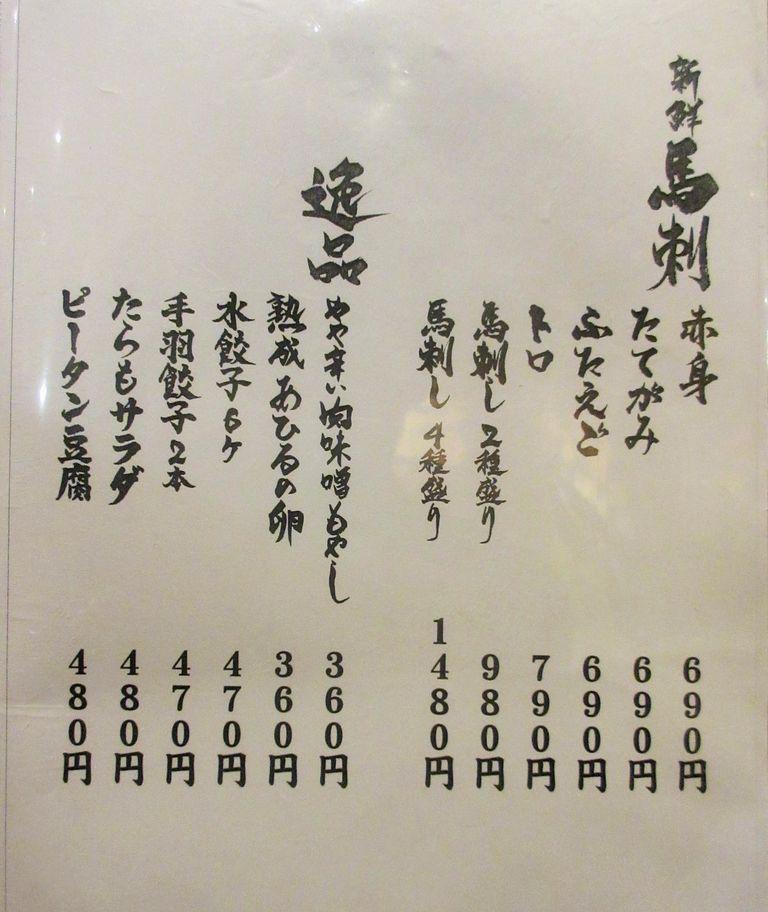 新鮮馬刺
赤身 690円
たてがみ 690円
ふたえご 690円
トロ 790円
馬刺し2種盛り 980円
馬刺し4種盛り 1480円
逸品
やや辛い肉味噌もやし 360円
熟成あひるの卵 360円
水餃子6ケ 470円
手羽餃子2本 470円
たらもサラダ 480円
ピータン豆腐 480円